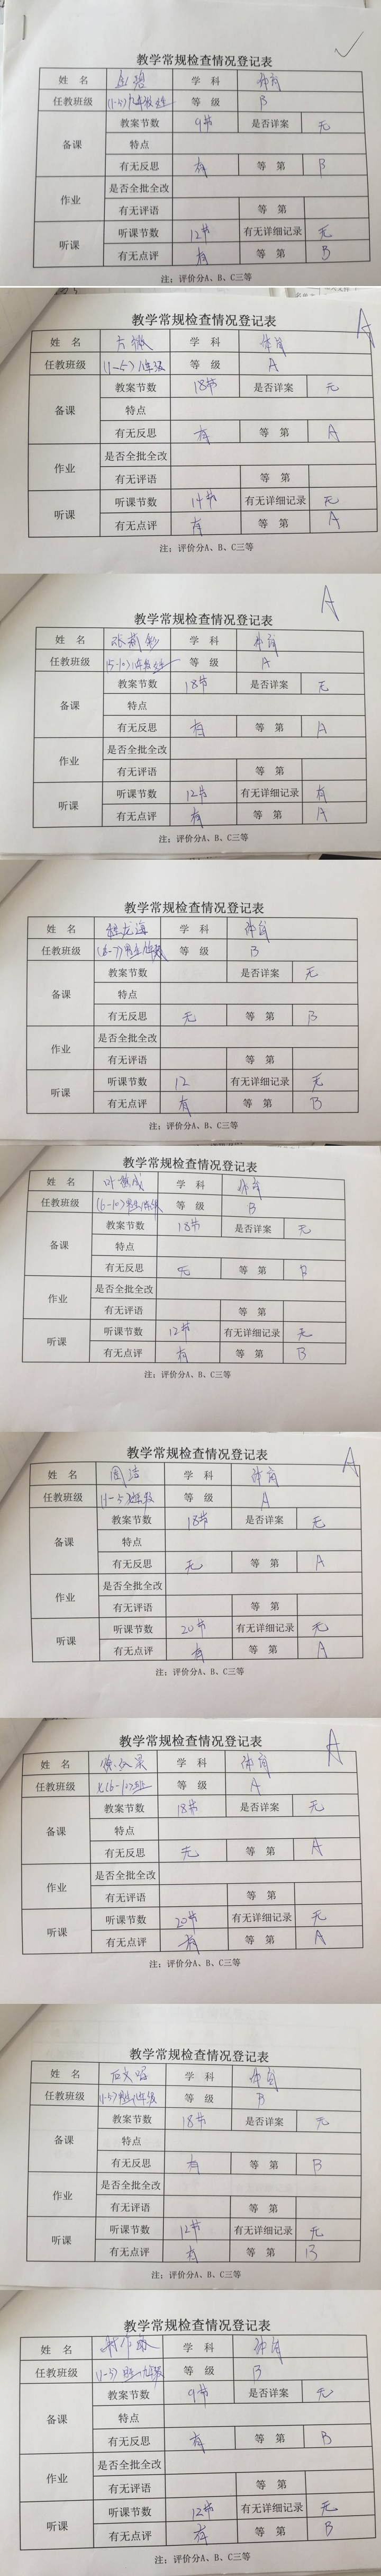 教学常规检查情况登记表
姓 名 学 科 体育
任教班级 等 级 B
备课 教案节数 9节 是否详案 无
特点
有无反思 有 等 第 B
作业 是否全批全改
有无评语 等 第
听课 听课节数 12节 有无详细记录 无
有无点评 有 等 第 B
注：评价分A、B、C三等
A
教学常规检查情况登记表
姓 名 学 科 体育
任教班级 (1-5)八年级 等 级 A
备课 教案节数 18节 是否详案 无
特点
有无反思 有 等 第 A
作业 是否全批全改
有无评语 等 第
听课 听课节数 14节 有无详细记录 无
有无点评 有 等 第 A
注：评价分A、B、C三等
A
教学常规检查情况登记表
姓 名 学 科 体育
任教班级 等 级 A
备课 教案节数 18节 是否详案 无
特点
有无反思 有 等 第 A
作业 是否全批全改
有无评语 等 第
听课 听课节数 12节 有无详细记录 有
有无点评 有 等 第 A
注：评价分A、B、C三等
教学常规检查情况登记表
姓 名 学 科 体育
任教班级 等 级 B
备课 教案节数 是否详案 无
特点
有无反思 无 等 第 B
作业 是否全批全改
有无评语 等 第
听课 听课节数 12 有无详细记录 无
有无点评 有 等 第 B
注：评价分A、B、C三等
教学常规检查情况登记表
姓 名 学 科 体育
任教班级 等 级 B
备课 教案节数 18节 是否详案 无
特点
有无反思 无 等 第 B
作业 是否全批全改
有无评语 等 第
听课 听课节数 12节 有无详细记录 无
有无点评 有 等 第 B
注：评价分A、B、C三等
A
教学常规检查情况登记表
姓 名 周洁 学 科 体育
任教班级 等 级 A
备课 教案节数 18节 是否详案 无
特点
有无反思 无 等 第 A
作业 是否全批全改
有无评语 等 第
听课 听课节数 20节 有无详细记录 无
有无点评 有 等 第 A
注：评价分A、B、C三等
A
教学常规检查情况登记表
姓 名 学 科 体育
任教班级 等 级 A
备课 教案节数 18节 是否详案 无
特点
有无反思 无 等 第 A
作业 是否全批全改
有无评语 等 第
听课 听课节数 20节 有无详细记录 无
有无点评 有 等 第 A
注：评价分A、B、C三等
教学常规检查情况登记表
姓 名 学 科 体育
任教班级 等 级 B
备课 教案节数 18节 是否详案 无
特点
有无反思 有 等 第 B
作业 是否全批全改
有无评语 等 第
听课 听课节数 12节 有无详细记录 无
有无点评 有 等 第 B
注：评价分A、B、C三等
教学常规检查情况登记表
姓 名 学 科 体育
任教班级 等 级 B
备课 教案节数 9节 是否详案 无
特点
有无反思 有 等 第 B
作业 是否全批全改
有无评语 等 第
听课 听课节数 12节 有无详细记录 无
有无点评 有 等 第 B
注：评价分A、B、C三等